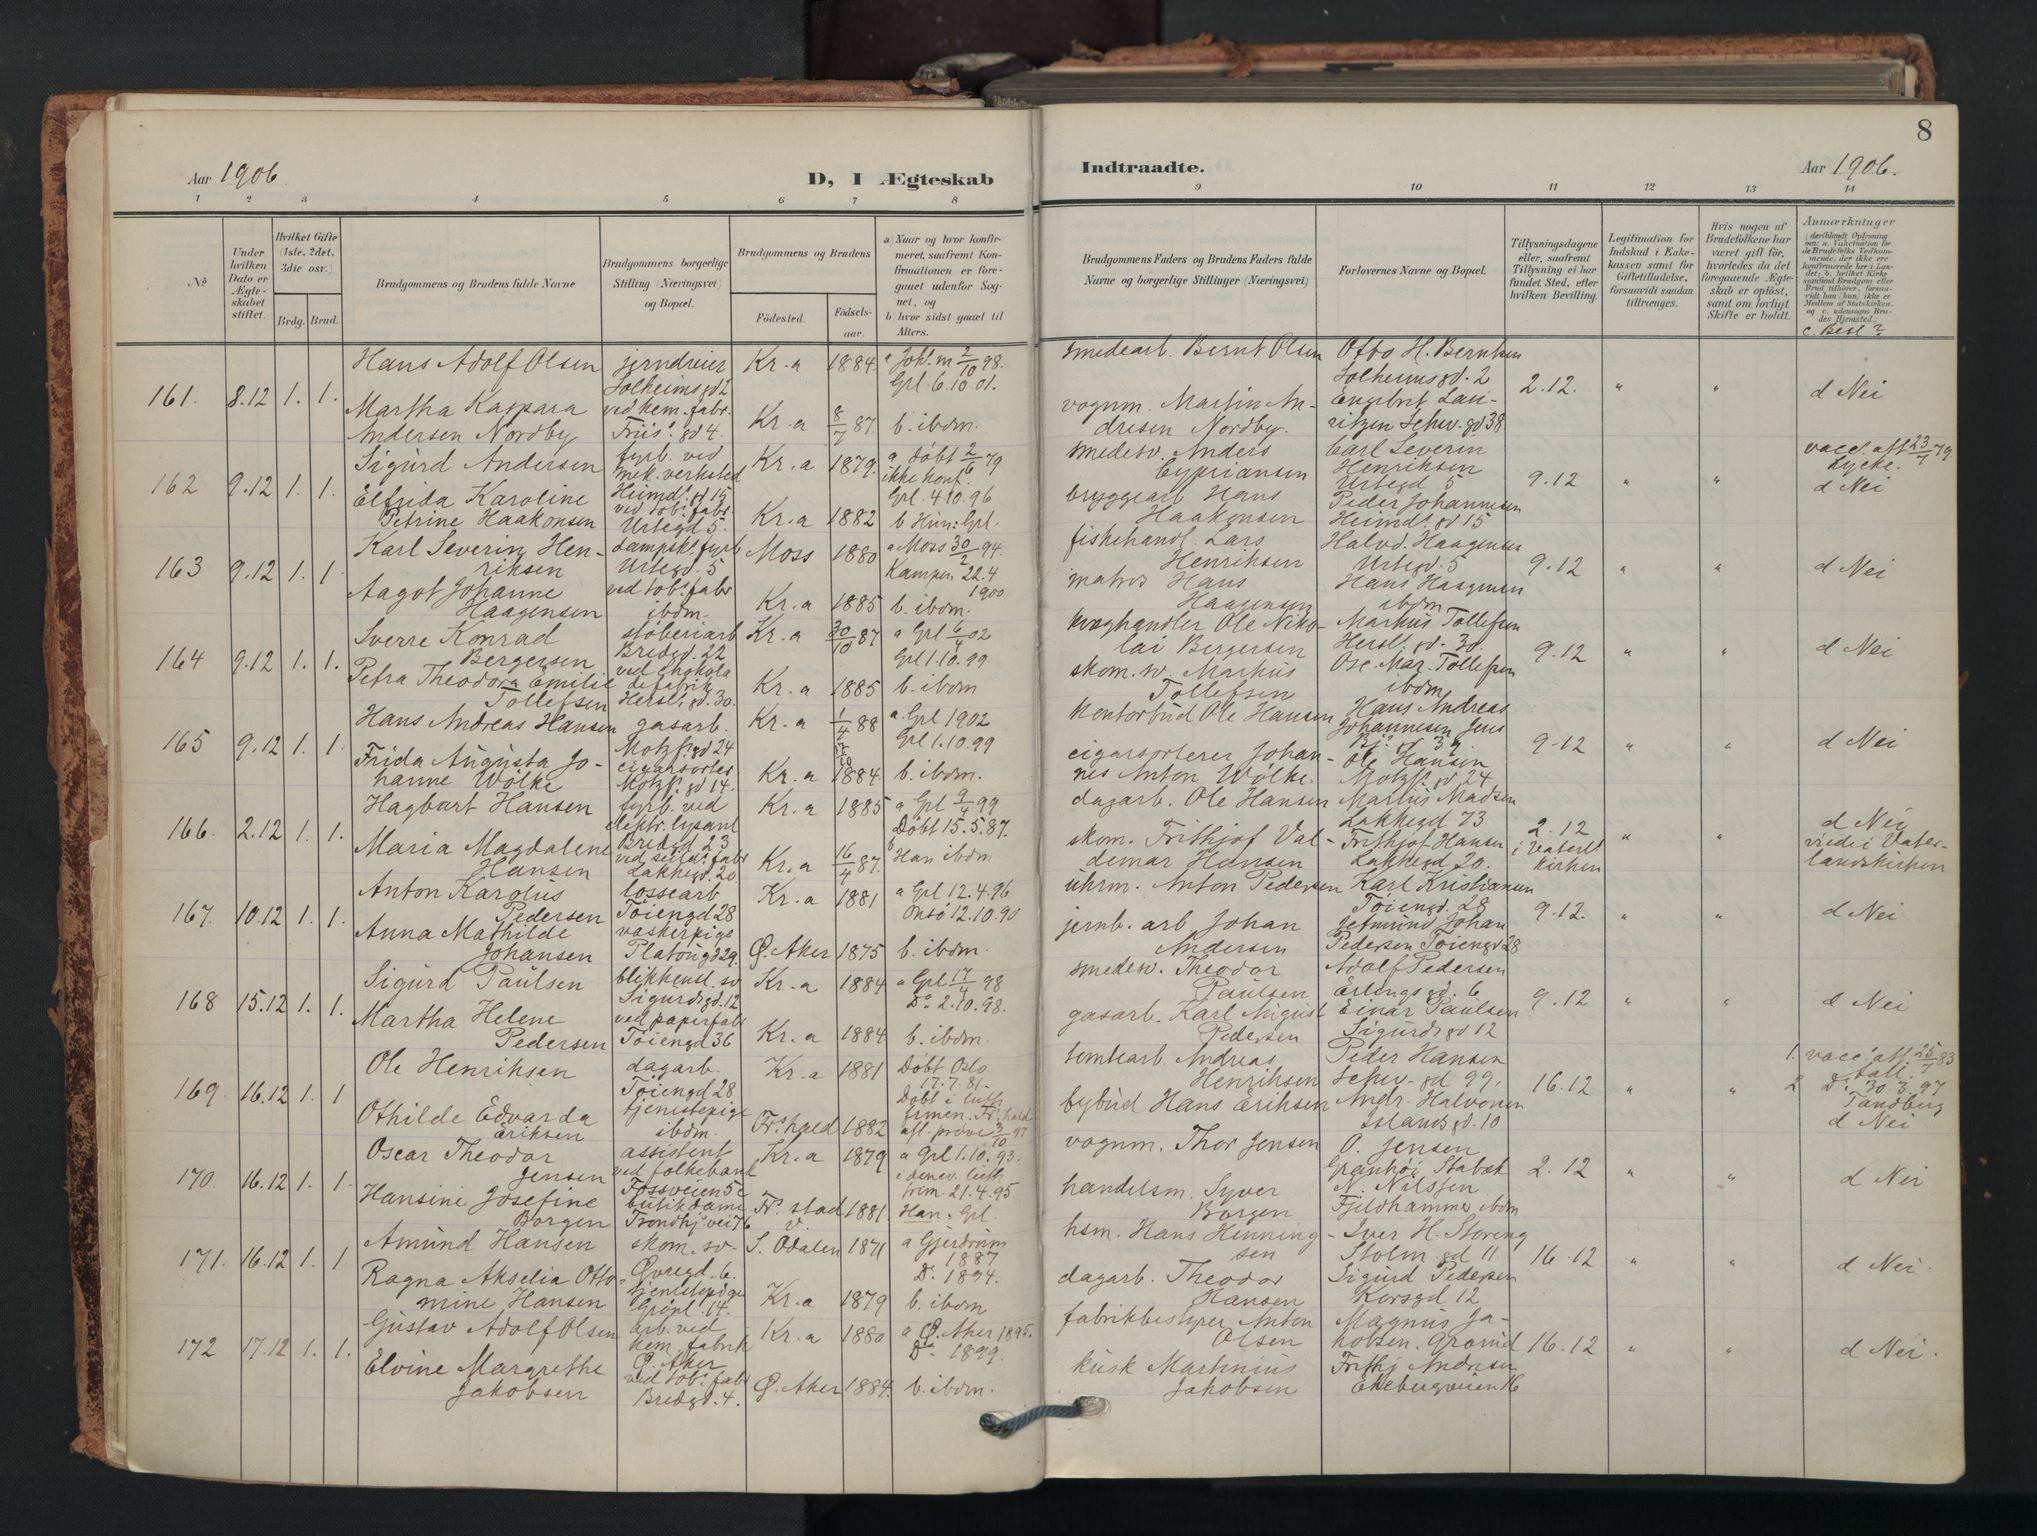 8
Aar 1906.
D, I Ægteskab
Indtraadte.
Aar 1906.
1 2 3 4 5 6 7 8
9 10 11 12 13 14
No
Under hvilken Dato er Ægteskabet stiftet.
Hvilket Gifte (1ste, 2det, 3die osv.)
Brdg. Brud.
Brudgommens og Brudens fulde Navne
Brudgommens borgerlige Stilling (Næringsvei) og Bopæl.
Brudgommens og Brudens
Fødested. Fødselsaar.
a) Naar og hvor konfirmeret, saafremt Konfirmationen er foregaaet udenfor Sognet, og
b) hvor sidst gaaet til Alters.
Brudgommens Faders og Brudens Faders fulde Navne og borgerlige Stillinger (Næringsvei)
Forlovernes Navne og Bopæl.
Tillysningsdagene eller, saafremt Tillysning ei har fundet Sted, efter hvilken Bevilling.
Legitimation for Indskud i Enkekassen samt for Giftetilladelse, forsaavidt saadan tiltrænges.
Hvis nogen af Brudefolkene har været gift før, hvorledes da det foregaaende Ægteskab er opløst, samt om lovligt Skifte er holdt.
Anmærkninger
c. Besl?
161. 8.12 1. 1.
Hans Adolf Olsen
jerndreier
Solheimsgd 2
Kr.a 1884
a Joh. m 2/10 98.
Grl. 6.10.01.
smedearb. Bernt Olsen
Otto H. Berntsen
Solheimsgd. 2
2.12. " " d Nei
Martha Kaspara
Andersen Nordby
ved kem. fabr.
Friis' gd 4.
Kr.a 8/7 87.
b. ibdm.
vognm. Martin Andresen Nordby.
Engebret Lauritzen Schw. gd 38
162 9.12 1. 1.
Sigurd Andersen
fyrb. ved
mek. verksted
Heimd. gd 15
Kr.a 1879.
a Døbt 2/6 79
ikke konf.
Grl. 4.10.96
smedesv. Anders
Cypriansen
Carl Severin
Henriksen
Urtegd 5
9.12 " "
vacc. att 23/7 79.
Lycke.
d Nei
Elfrida Karoline
Petrine Haakonsen
ved tob. fabr
Urtegd 5.
Kr.a 1882
b Hun: Grl.
bryggearb. Hans
Haakonsen
Peder Johannesen
Heimd. gd 15
163 9.12 1. 1.
Karl Severin Henriksen
dampsk. fyrb
Urtegd. 5
Moss 1880
a Moss 30/2 94.
Kampen 22.4
1900
fiskehandl. Lars
Henriksen
Halvd. Haagensen
Urtegd. 5
9.12 " " d Nei
Aagot Johanne
Haagensen
ved tob. fabr
ibdm.
Kr.a 1885
b. ibdm.
matros Hans
Haagensen
Hans Haagensen
ibdm
164 9.12 1. 1.
Sverre Konrad
Bergersen
støberiarb
Bredgd. 22
Kr.a 30/10 87
a Grl 6/4 02
Grl 1.10.99
kvæghandler Ole Nikolai Bergersen
Markus Tollefsen
Hersl. gd. 30.
9.12 " " d Nei
Petra Theodora Emilie
Tollefsen
ved chokoladefabrik
Hersl. gd. 30.
Kr.a 1885
b. ibdm
skom. sv. Markus
Tollefsen
Osc. Mar. Tollefsen
ibdm
165 9.12 1. 1.
Hans Andreas Hansen
gasarb.
Motzf. gd 24
Kr.a 1/4 88
a. Grl 1902
Grl 1.10.99
kontorbud Ole Hansen
Hans Andreas
Johannesen Jens
9-12 " " d Nei
Frida Augusta Johanne Wölke
cigarsorter
Motzf. gd 14.
Kr.a 1884.
b. ibdm.
cigarsorterer Johannes Anton Wölke.
Ole Hansen
Motzf. gd 24
166. 2.12 1. 1.
Hagbart Hansen
fyrb. ved
elektr. lysanl
Bredgd 23
Kr.a 1885
a Grl 9/4 99
Døbt 15.5.87.
dagarb. Ole Hansen
Marius Madsen
Lakkegd 73
2.12
i Vaterl
kirken
" "
d Nei
viede i Vaterlandskirken
Maria Magdalene
Hansen
ved seild. fabr
Lakkegd. 20
Kr.a 16/4 87.
b Han ibdm
skom. Frithjof Valdemar Hansen
Frithjof Hansen
Lakkegd 20.
167. 10.12 1. 1.
Anton Karolius
Pedersen
lossearb
Tøiengd 28
Kr.a 1881
a Grl 12.4.96
Onsø 12.10.90
uhrm. Anton Pedersen
Karl Kristiansen
Tøiengd. 28
9.12. " " d Nei
Anna Mathilde
Johansen
vaskerpige
Platougd 29.
Ø. Aker 1875
b. ibdm.
jernb. arb Johan
Andersen
Getmund Johan
Pedersen Tøiengd 28
168 15.12 1. 1.
Sigurd Paulsen
blikkensl. sv
Sigurdsgd. 12
Kr.a 1884
a Grl 17/4 98
Do. 2.10.98.
smedesv. Theodor
Paulsen
Adolf Pedersen
Erlingsgd. 6
9.12 " " d Nei
Martha Helene
Pedersen
ved papirfabr
Tøiengd 36
Kr.a 1884
b. ibdm.
gasarb. Karl August
Pedersen
Einar Paulsen
Sigurdsgd 12
169. 16.12 1. 1
Ole Henriksen
dagarb.
Tøiengd 28
Kr.a 1881
Døbt Oslo
17.7.81.
tomtearb. Andreas
Henriksen
Peder Hansen
Schw. gd 99.
16.12 " "
1. vacc. att 25/7 83
2 Do. 30.3.97
Tandberg
d Nei
Othilde Edvarda
Eriksen
tjenestepige
ibdm.
Fr. hald 1882
Døbt i luth
frimen. Fr. hald
afl. prøve 3/10 97
bybud Hans Eriksen
Andr. Halvorsen
Islandsgd. 10
170. 16.12 1. 1
Oscar Theodor
Jensen
assistent
ved folkebank
Tossveien 5c
Kr.a 1879
a Grl 1.10.93.
vognm. Thor Jensen
O. Jensen
Granhøi Stabæk
2.12 " " d Nei
Hansine Josefine
Borgen
butikdame
Trondhj. vei 76
Fr. stad 1881.
i denev. luth
frim 21.4.95
Han: Grl.
handelsm. Syver
Borgen
N. Nilssen
Fjeldhammer ibdm
171. 16.12 1. 1
Amund Hansen
skom. sv.
Øvregd. 6.
S. Odalen 1871
a Gjerdrum
1887
Do. 1894.
hsm. Hans Henningsen
Iver H. Storeng
Stolm. gd 11
16.12 " " d Nei.
Ragna Akselia Ottomine Hansen
tjenestepige
Grønl. 14.
Kr.a 1879
b. ibdm
dagarb. Theodor
Hansen
Sigurd Pedersen
Korsgd 12
172 17.12 1. 1.
Gustav Adolf Olsen
arb. ved
kem. fabrik
Ø. Aker
Kr.a 1880
a Ø. Aker 1895.
Do. 1899.
fabrikbestyrer Anton
Olsen
Magnus Jakobsen. Grorud
16.12 " " d Nei.
Elvine Margrethe
Jakobsen
ved tob. fabr
Bredgd. 4.
Ø. Aker 1884.
b. ibdm.
kusk Martinius
Jakobsen
Frithj Andresen
Ekebergveien 16